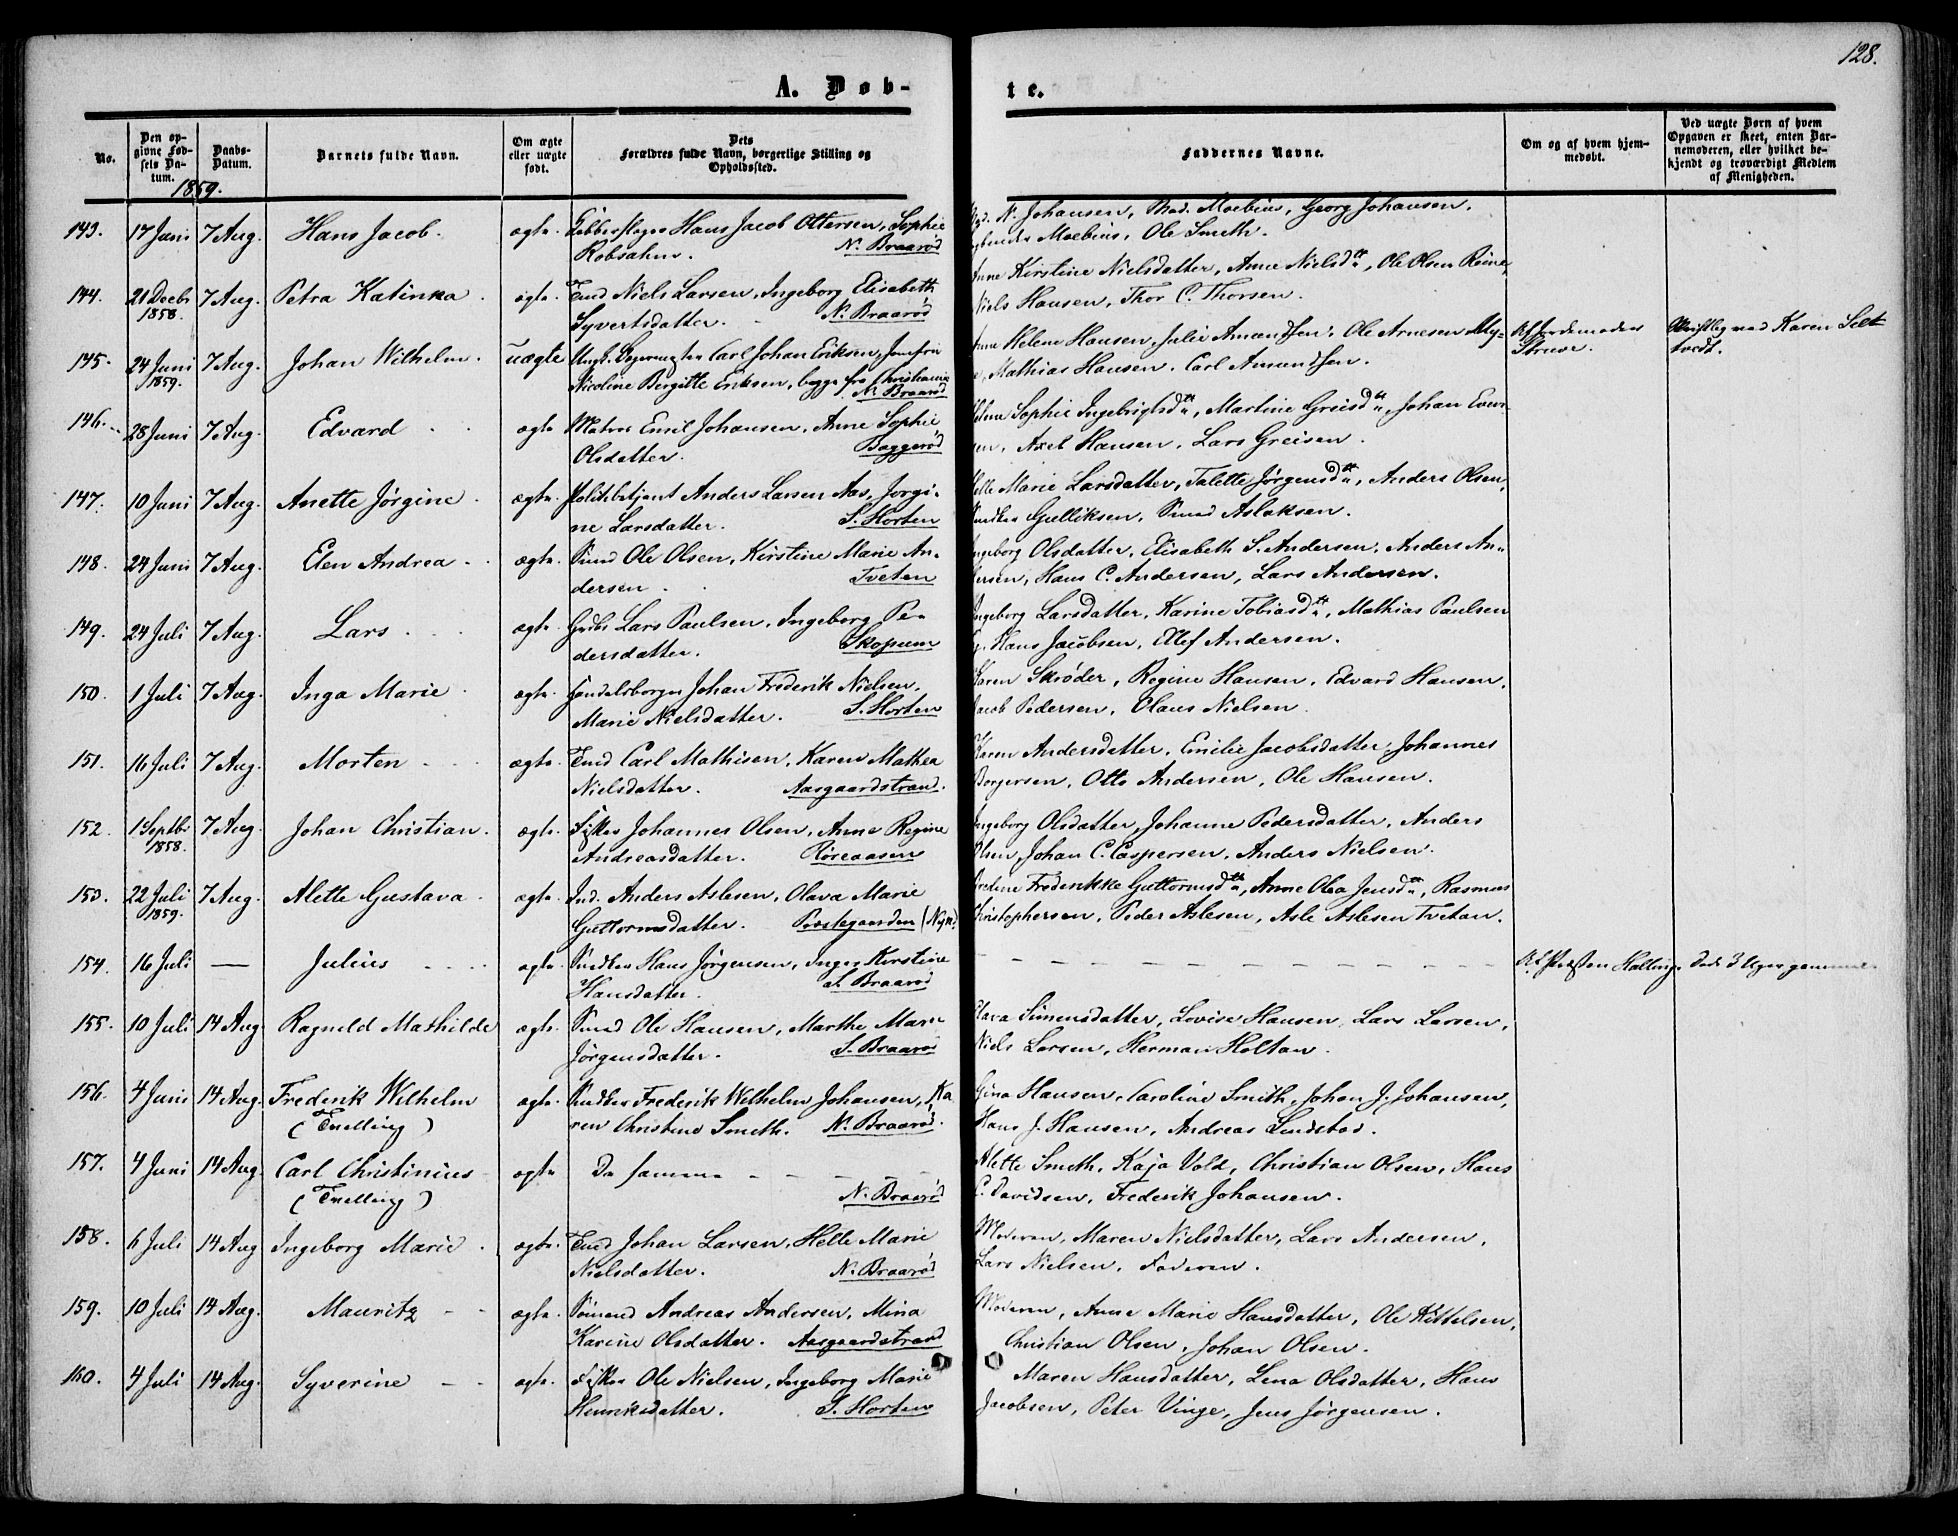 128.
A. Døb-
te.
No.
Den op-
givne Fød-
sels Da-
tum.
Daabs-
Datum.
Barnets fulde Navn.
Om ægte
eller uægte
født.
Dets
Forældres fulde Navn, borgerlige Stilling og
Opholdssted.
Faddernes Navne.
Om og af hvem hjem-
medøbt.
Ved uægte Børn af hvem
Opgaven er skeet, enten Bar-
nemoderen, eller hvilket be-
kjendt og troværdigt Medlem
af Menigheden.
1859.
143. 17 Juni 7 Aug. Hans Jacob. ægte Hans Jacob Ottersen, Sophie
Robsahm. N. Braarød
N. Johansen, Mad. Moebius, Georg Johansen.
Moebius, Ole Smith.
144. 21 Decbr 7 Aug. Petra Katinka. ægte Tmd Niels Larsen, Ingeborg Elisabeth
1858. Syvertsdatter. N. Braarød
Anne Kirstine Nielsdatter, Anne Nielsdtr, Ole Olsen
Niels Hansen, Thor C. Thorsen.
145. 24 Juni 7 Aug. Johan Wilhelm. uægte Ungk. Carl Johan Eriksen, Jomfru
1859. Nicoline Birgitte Eriksen, begge fra Christiania
N. Braarød
Helene Hansen, Julie Amundsen, Ole Arnesen My-
Mathias Hansen, Carl Amundsen.
Af Jordemoder
Struve.
Skriftlig ved Karen Selt
tvedt.
146. 28 Juni 7 Aug. Edvard ægte Matros Emil Johansen, Anne Sophie
Olsdatter. Baggerød
Sophie Ingebrigtsdtr, Martine Greisdtr, Johan Even-
sen, Axel Hansen, Lars Greisen.
147. 10 Juni 7 Aug. Anette Jørgine ægte Politibetjent Anders Larsen Aas, Jørgi-
ne Larsdatter. S. Horten
Helle Marie Larsdatter, Talette Jørgensdtr, Anders Olsen,
Snedker Gulliksen, Smed Aslaksen.
148. 24 Juni 7 Aug. Elen Andrea ægte Smed Ole Olsen, Kirstine Marie An-
dersen. Tveten
Ingeborg Olsdatter, Elisabeth S. Andersen, Anders An-
dersen, Hans C. Andersen, Lars Andersen.
149. 24 Juli 7 Aug. Lars ægte Grdbr Lars Paulsen, Ingeborg Pe-
dersdatter. Skopum
Ingeborg Larsdatter, Karine Tobiasdtr, Mathias Paulsen
Hans Jacobsen, Ellef Andersen.
150. 1 Juli 7 Aug. Inga Marie ægte Handelsborger Johan Frederik Nielsen,
Marie Nielsdatter. S. Horten
Karen Skrøder, Regine Hansen, Edvard Hansen,
Jacob Pedersen, Olaus Nielsen.
151. 16 Juli 7 Aug. Morten ægte Tmd Carl Mathisen, Karen Mathea
Nielsdatter. Aasgaardstrand.
Karen Andersdatter, Emilie Jacobsdatter, Johannes
Borgersen, Otto Andersen, Ole Hansen.
152. 1 Septbr 7 Aug. Johan Christian. ægte Fisker Johannes Olsen, Anne Regine
1858. Andreasdatter. Røreaasen
Ingeborg Olsdatter, Johanne Pedersdatter, Anders
Olsen, Johan C. Caspersen, Anders Nielsen.
153. 22 Juli 7 Aug. Alette Gustava. ægte Ind. Anders Aslesen, Olava Marie
1859. Guttormsdatter. Præstegaarden (Nyk.
Fredrikke Guttormsdtr, Anne Olea Jensdtr, Rasmus
Christophersen, Peder Aslesen, Asle Aslesen Tvetan.
154. 16 Juli — Julius ægte Snedker Hans Jørgensen, Inger Kirstine
Hansdatter. S. Braarød
Af Præsten Halling. Døde 3 Uger gammel
155. 10 Juli 14 Aug Ragnild Mathilde ægte Smed Ole Hansen, Marthe Marie
Jørgensdatter. S. Braarød
Olava Simensdatter, Lovise Hansen, Lars Larsen,
Niels Larsen, Herman Holtan.
156. 4 Juni 14 Aug. Frederik Wilhelm ægte Snedker Frederik Wilhelm Johansen, Ka
(Tvelling) ren Christine Smith. N. Braarød.
Gina Hansen, Caroline Smith, Johan J. Johansen,
Hans J. Hansen, Andreas Lindstad.
157. 4 Juni 14 Aug. Carl Christinius ægte De samme
(Tvelling) N. Braarød
Alette Smith, Kaja Vold, Christian Olsen, Hans
C. Davidsen, Frederik Johansen.
158. 6 Juli 14 Aug Ingeborg Marie ægte Tmd Johan Larsen, Helle Marie
Nielsdatter. N. Braarød
Moderen, Maren Nielsdatter, Lars Andersen,
Lars Nielsen, Faderen.
159. 10 Juli 14 Aug. Mauritz ægte Sømand Andreas Andersen, Mina
Karine Olsdatter. Aasgaardstrand
Moderen, Anne Marie Hansdatter, Ole Kittelsen,
Christian Olsen, Johan Olsen.
160. 4 Juli 14 Aug. Syverine ægte Fisker Ole Nielsen, Ingeborg Marie
Henriksdatter. S. Horten
Maren Hansdatter, Lena Olsdatter, Hans
Jacobsen, Peter Vinge, Jens Jørgensen.